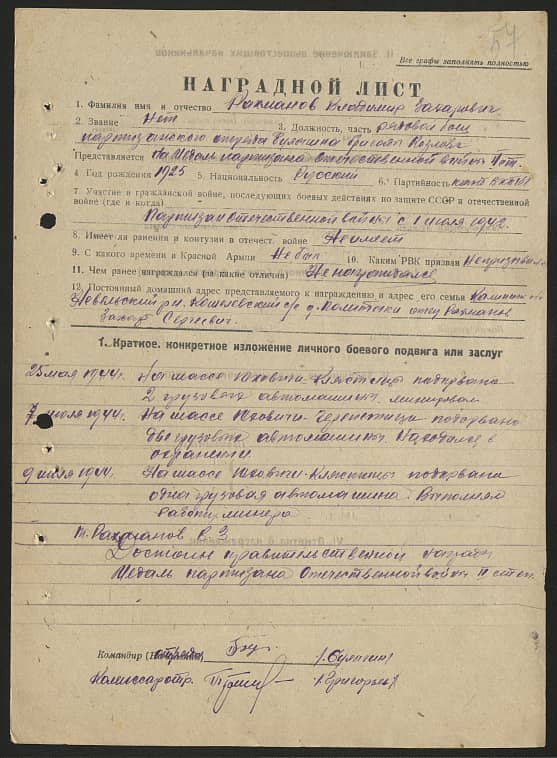 57
Все графы заполнять полностью
НАГРАДНОЙ ЛИСТ
1. Фамилия имя и отчество Рахманов Владимир Захарович
2. Звание Нет 3. Должность, часть рядовой боец
партизанского отряда бригады
Представляется на медаль партизана Отечественной войны II ст.
4. Год рождения 1925 5. Национальность Русский 6. Партийность канд ВКП(б)
7. Участие в гражданской войне, последующих боевых действиях по защите СССР и отечественной
войне (где и когда)
Партизан отечественной войны с 1 июля 1942.
8. Имеет ли ранения и контузии в отечест. войне Не имеет
9. С какого времени в Красной Армии Не был 10. Каким РВК призван
11. Чем ранее награждался (за какие отличия) Не награждался
12. Постоянный домашний адрес представляемого к награждению и адрес его семьи
Невельский с/с д. отец Рахманов
Захар Сергеевич.
1. Краткое, конкретное изложение личного боевого подвига или заслуг
25 мая 1944г. На шассе Юховичи подорвана
2 грузовых автомашины.
7 июля 1944г. На шассе Юховичи подорвано
две грузовых автомашины. Находился в
охранении
9 июля 1944. На шассе Юховичи подорвана
одна грузовая автомашина. Выполнял
работу минера
т. Рахманов В З
Достоин правительственной награды
Медаль партизана Отечественной войны II степ.
Командир отряда
Комиссар отр. /Григорьев/